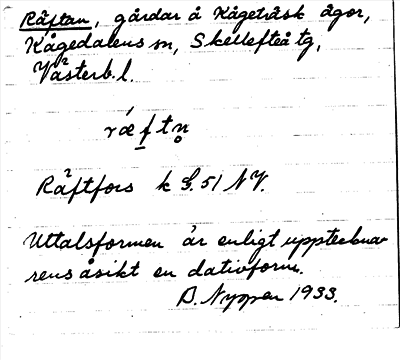 Räftan, gårdar å Kågeträsk ägor,
Kågedalens sn, Skellefteå tg,
Västerb. l.
ræftn̥
Räftfors k G. 51 NV.
Uttalsformen är enligt uppteckna-
rens åsikt en dativform.
B. Nyman 1933.